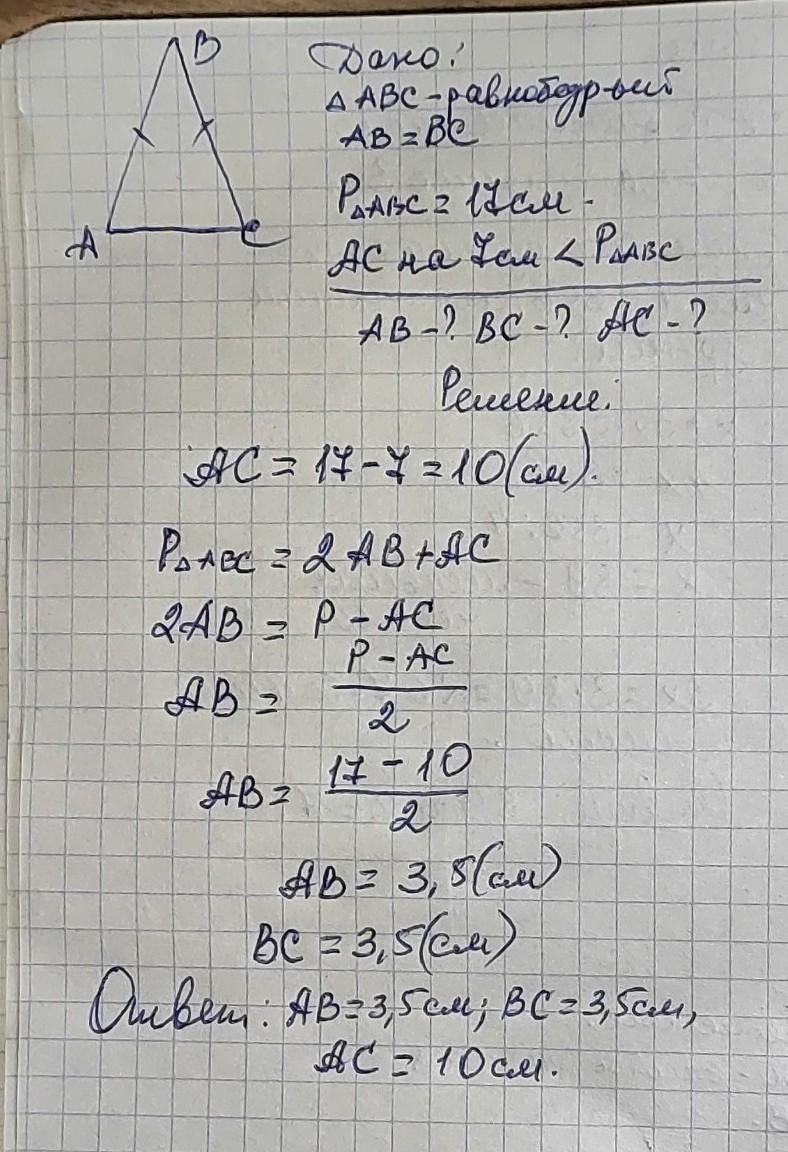 B
Дано:
△ABC-равнобедр-ый
AB=BC
A
C
P△ABC = 17см.
AC на 7см < P△ABC
AB-? BC-? AC-?
Решение:
AC = 17-7=10(см).
P△ABC = 2AB+AC
2AB = P-AC
AB = P-AC / 2
AB = 17-10 / 2
AB = 3,5(см)
BC = 3,5(см)
Ответ: AB=3,5см; BC=3,5см,
AC = 10см.